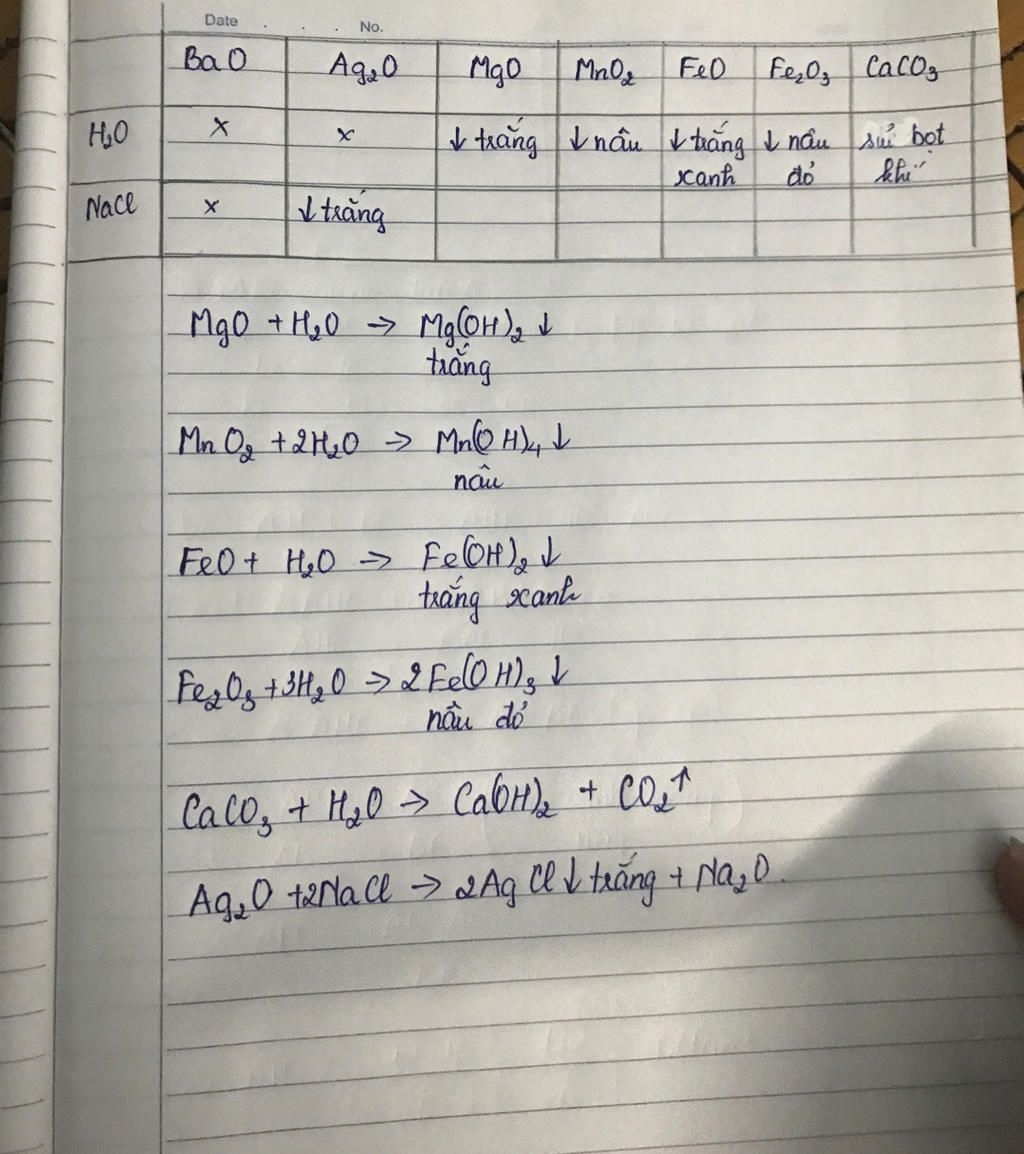 Date . . . No.
BaO Ag₂O MgO MnO₂ FeO Fe₂O₃ CaCO₃
H₂O x x ↓ trắng ↓ nâu ↓ trắng xanh ↓ nâu đỏ sủi bọt khí
NaCl x ↓ trắng
MgO + H₂O → Mg(OH)₂ ↓
trắng
MnO₂ + 2H₂O → Mn(OH)₄ ↓
nâu
FeO + H₂O → Fe(OH)₂ ↓
trắng xanh
Fe₂O₃ + 3H₂O → 2Fe(OH)₃ ↓
nâu đỏ
CaCO₃ + H₂O → Ca(OH)₂ + CO₂↑
Ag₂O + 2NaCl → 2AgCl ↓ trắng + Na₂O.